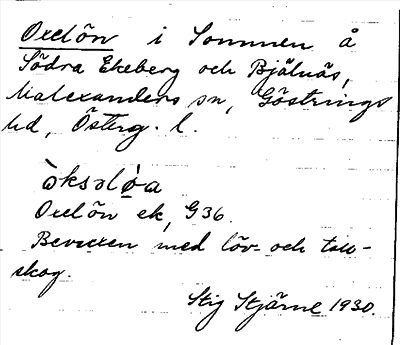 Oxelön i Sommen å
Södra Ekeberg och Bjälnäs,
Malexanders sn, Göstrings
hd, Österg. l.
òksəløa
Oxelön ek, G36.
Bevuxen med löv- och tall-
skog.
Stig Stjärne 1930.